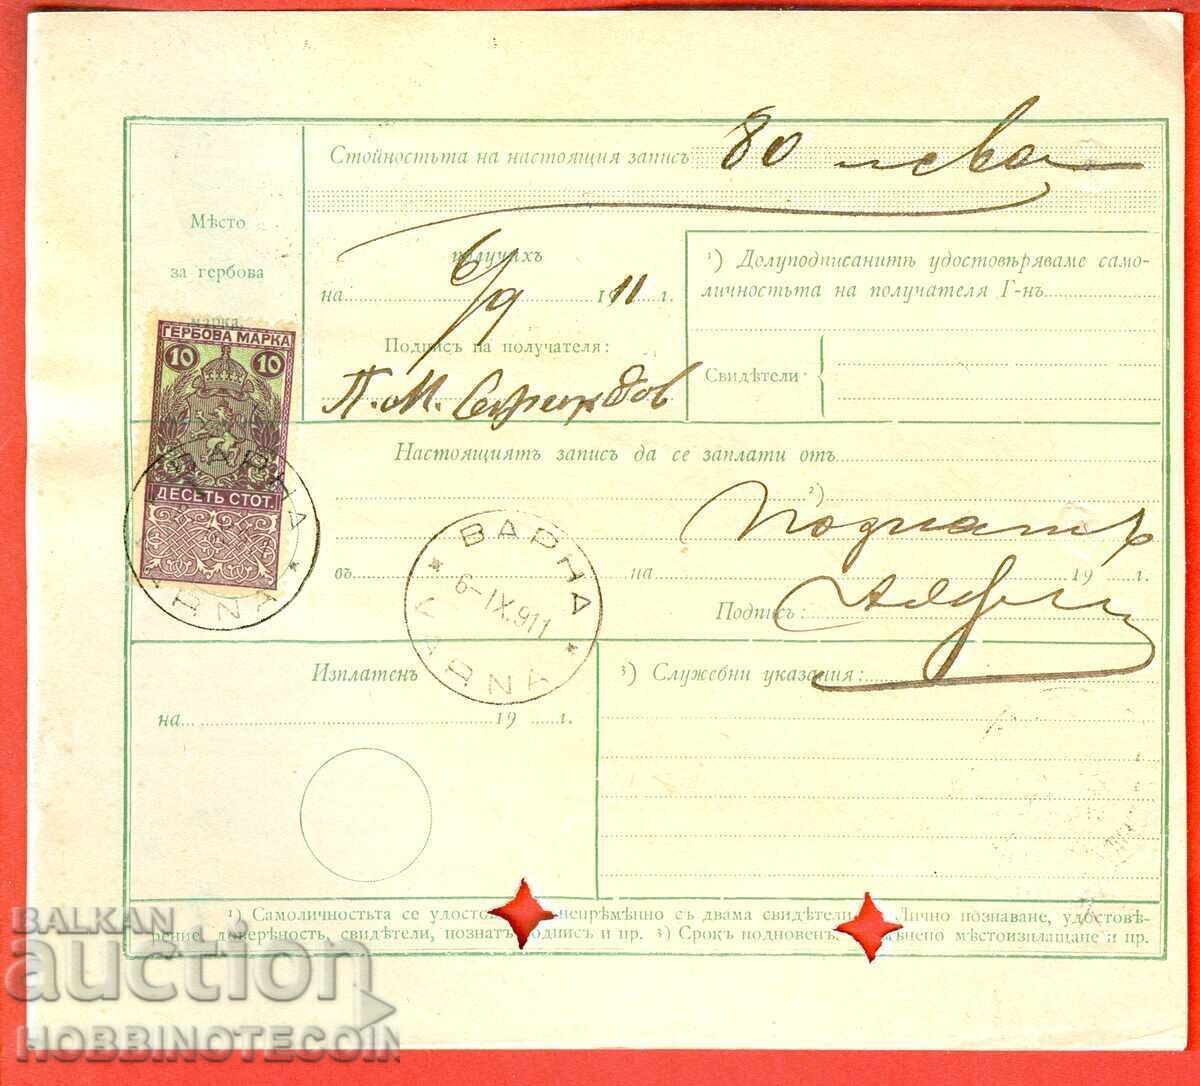 Стойностьта на настоящия записъ 80 лева
Мѣсто
за гербова
марка.
получихъ
на 6/9 1911 г.
Подписъ на получателя:
П. М.
¹) Долуподписанитѣ удостовѣряваме само-
личностьта на получателя Г-нъ
Свидѣтели:
ГЕРБОВА МАРКА
10 10
ДЕСЕТЬ СТОТ.
ВАРНА
VARNA
Настоящиятъ записъ да се заплати отъ
²)
Познатъ
въ на 19 г.
Подписъ:
ВАРНА
6-IX.911
VARNA
Изплатенъ
на 19 г.
³) Служебни указания:
¹) Самоличностьта се удосто непрѣмѣнно съ двама свидѣтели Лично познаване, удостовѣ-
рение, довѣрность, свидѣтели, познатъ подпис и пр. ³) Срокъ подновенъ. мѣстоизплащане и пр.
BALKAN
auction
HOBBINOTECOIN